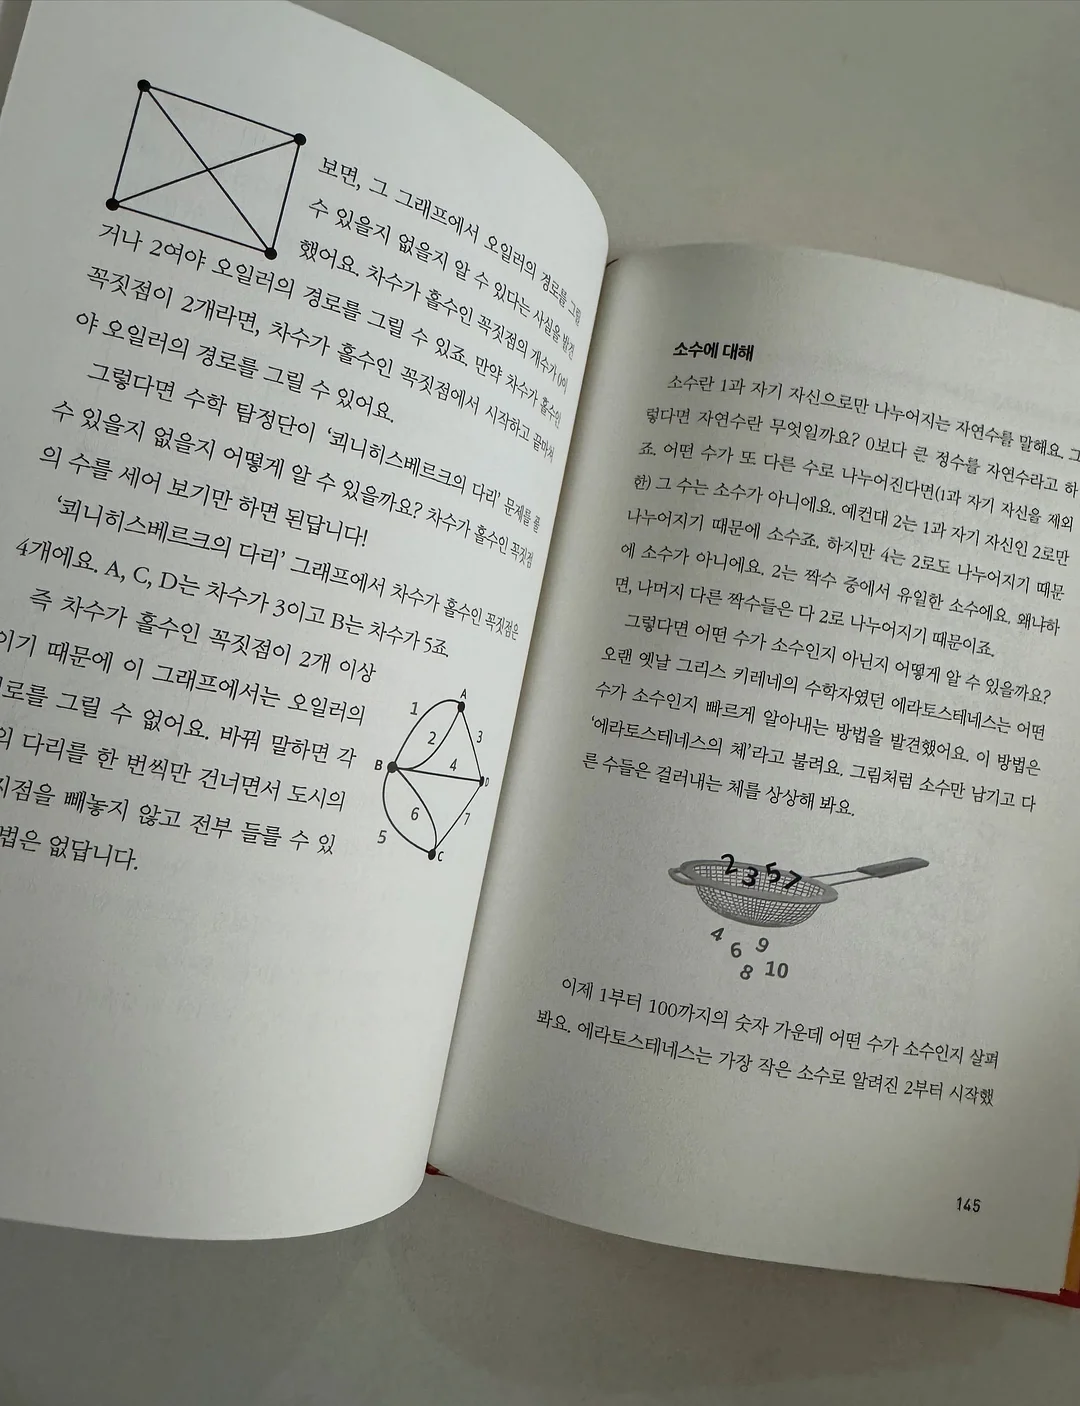 보면, 그 그래프에서 오일러의 경로를 그릴
수 있을지 없을지 알 수 있다는 사실을 발견
했어요. 차수가 홀수인 꼭짓점의 개수가 0이
거나 2여야 오일러의 경로를 그릴 수 있죠. 만약 차수가 홀수인
꼭짓점이 2개라면, 차수가 홀수인 꼭짓점에서 시작하고 끝마쳐
야 오일러의 경로를 그릴 수 있어요.
그렇다면 수학 탐정단이 ‘쾨니히스베르크의 다리’ 문제를 풀
수 있을지 없을지 어떻게 알 수 있을까요? 차수가 홀수인 꼭짓점
의 수를 세어 보기만 하면 된답니다!
‘쾨니히스베르크의 다리’ 그래프에서 차수가 홀수인 꼭짓점은
4개에요. A, C, D는 차수가 3이고 B는 차수가 5죠.
즉 차수가 홀수인 꼭짓점이 2개 이상
이기 때문에 이 그래프에서는 오일러의
로를 그릴 수 없어요. 바꿔 말하면 각
의 다리를 한 번씩만 건너면서 도시의
지점을 빼놓지 않고 전부 들를 수 있
법은 없답니다.
A
1
2
3
B
4
D
6
7
5
C
소수에 대해
소수란 1과 자기 자신으로만 나누어지는 자연수를 말해요. 그
렇다면 자연수란 무엇일까요? 0보다 큰 정수를 자연수라고 하
죠. 어떤 수가 또 다른 수로 나누어진다면(1과 자기 자신을 제외
한) 그 수는 소수가 아니에요. 예컨대 2는 1과 자기 자신인 2로만
나누어지기 때문에 소수죠. 하지만 4는 2로도 나누어지기 때문
에 소수가 아니에요. 2는 짝수 중에서 유일한 소수에요. 왜냐하
면, 나머지 다른 짝수들은 다 2로 나누어지기 때문이죠.
그렇다면 어떤 수가 소수인지 아닌지 어떻게 알 수 있을까요?
오랜 옛날 그리스 키레네의 수학자였던 에라토스테네스는 어떤
수가 소수인지 빠르게 알아내는 방법을 발견했어요. 이 방법은
‘에라토스테네스의 체’라고 불려요. 그림처럼 소수만 남기고 다
른 수들은 걸러내는 체를 상상해 봐요.
2 3 5 7
4 6 9
8 10
이제 1부터 100까지의 숫자 가운데 어떤 수가 소수인지 살펴
봐요. 에라토스테네스는 가장 작은 소수로 알려진 2부터 시작했
145